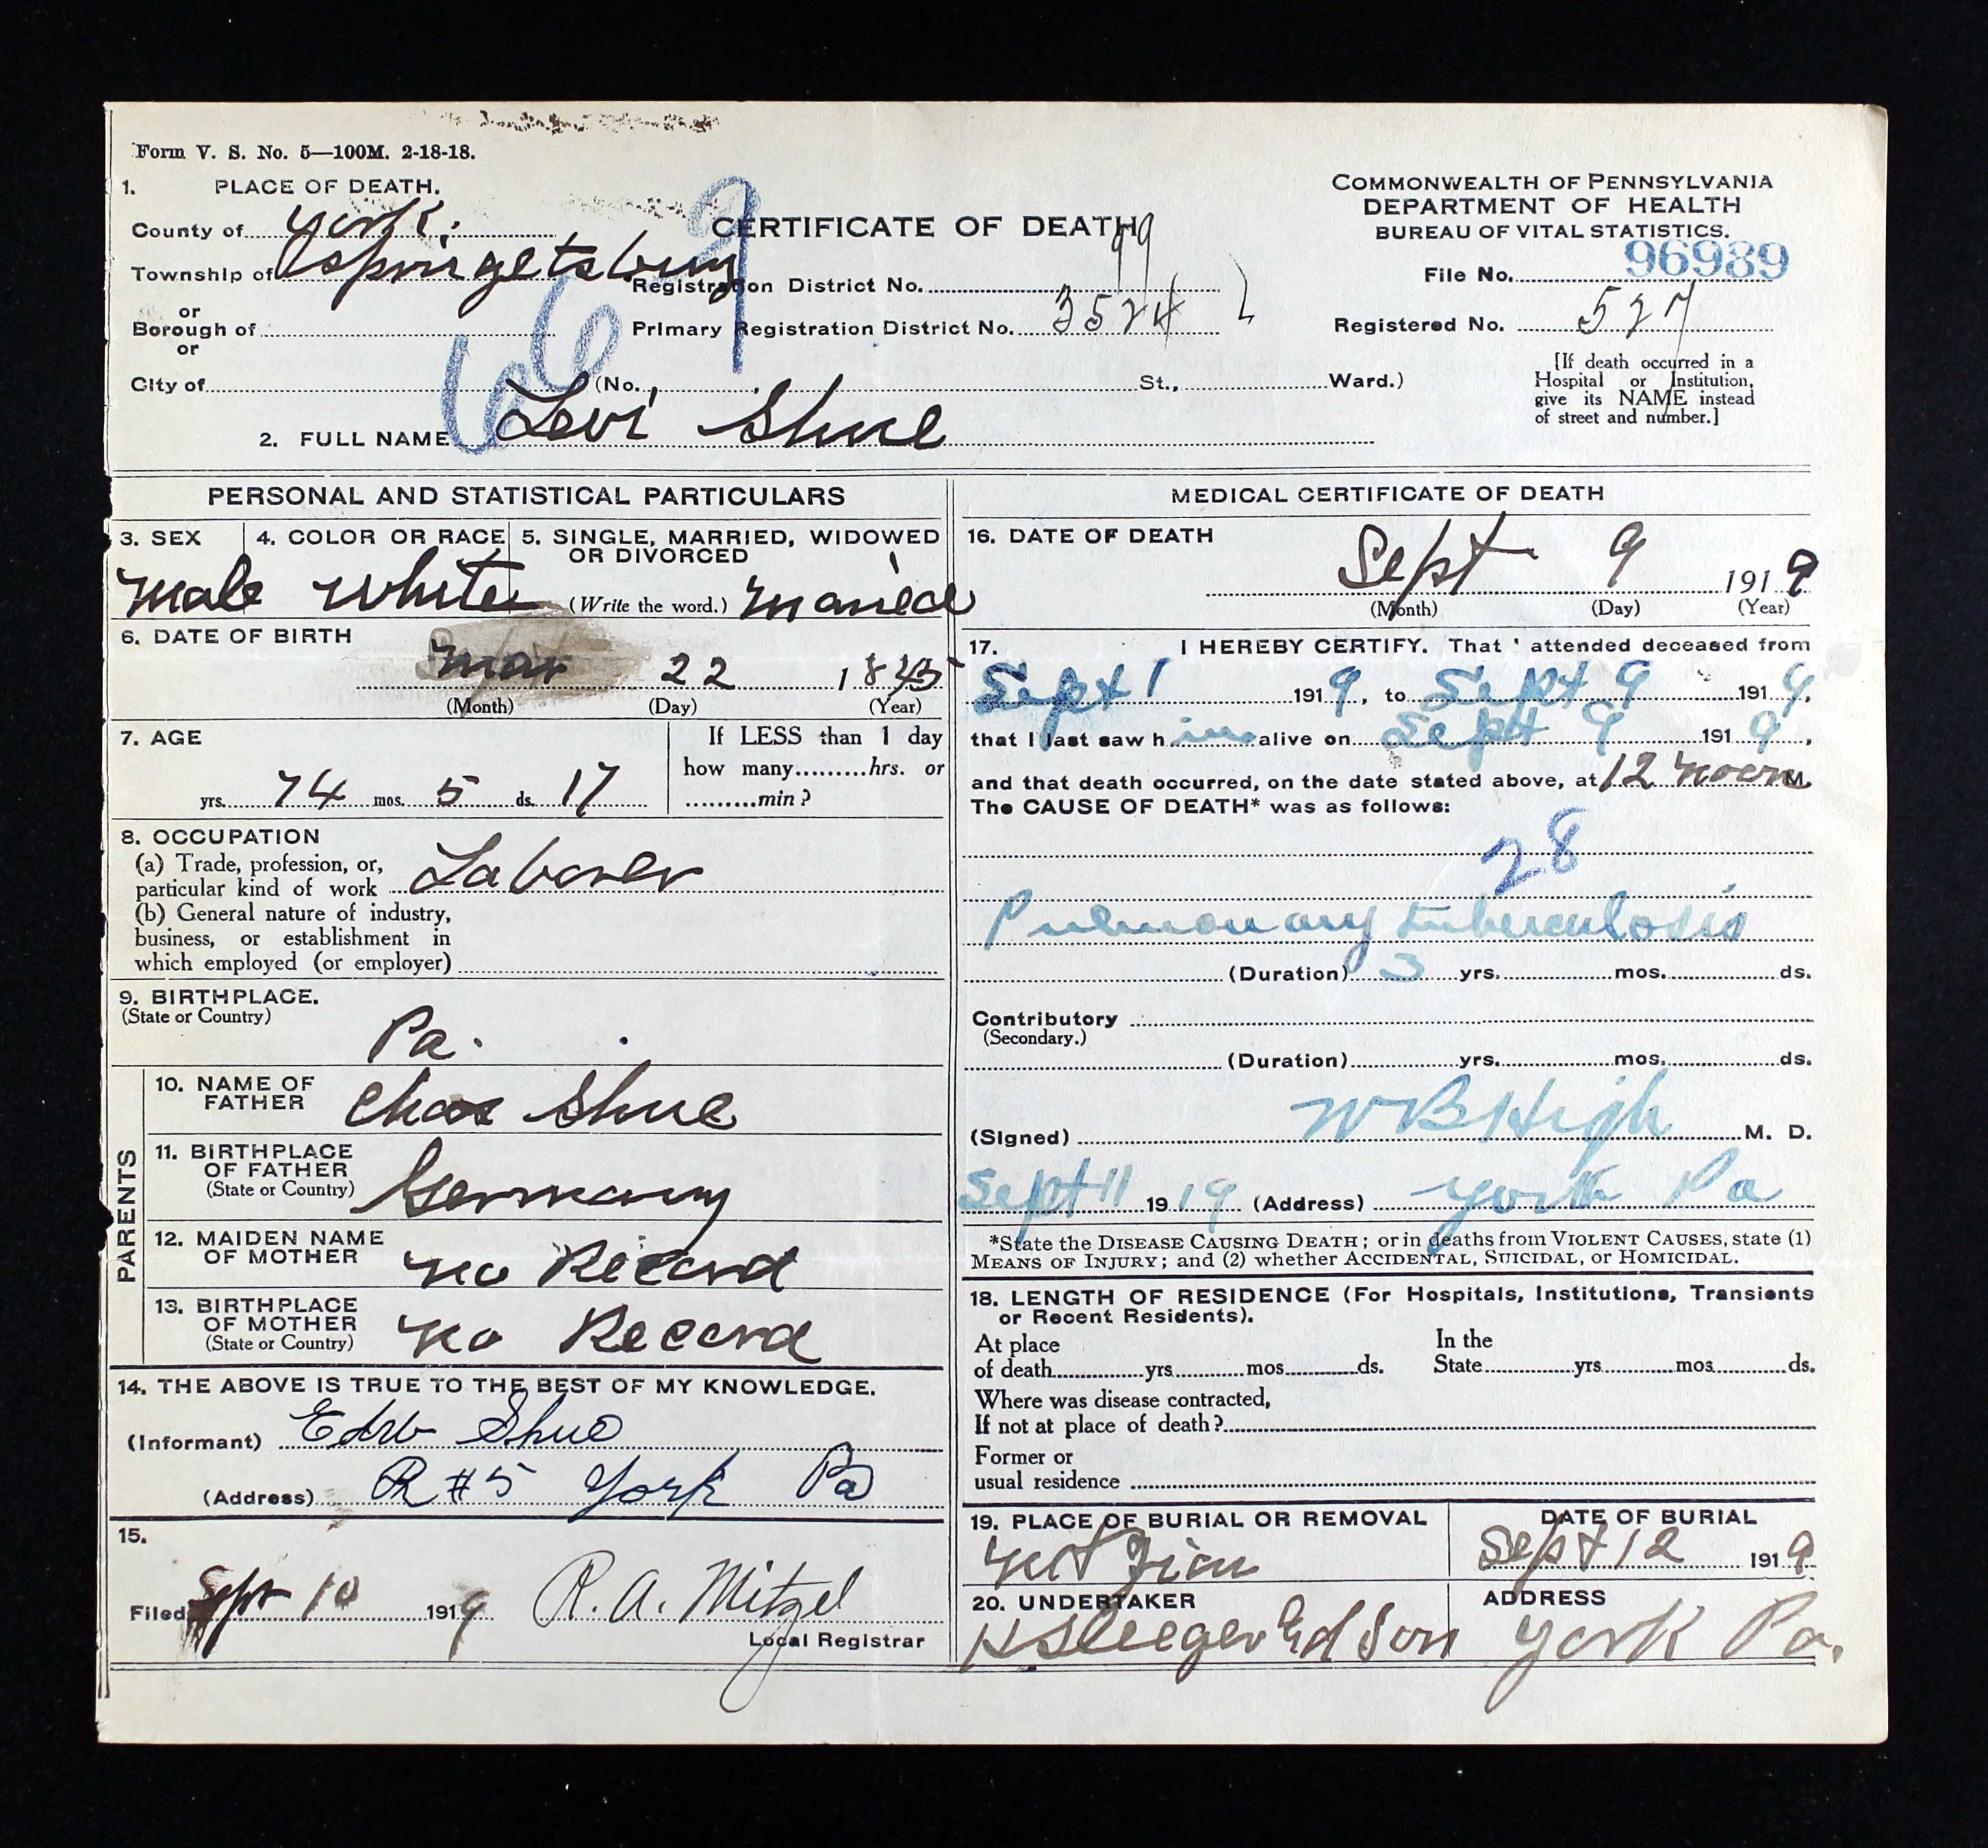 Form V. S. No. 5—100M. 2-18-18.
1. PLACE OF DEATH.
County of York.
Township of Springetsbury
or
Borough of
or
City of
CERTIFICATE OF DEATH
Registration District No. 99
Primary Registration District No. 3524
(No. , St., Ward.)
COMMONWEALTH OF PENNSYLVANIA
DEPARTMENT OF HEALTH
BUREAU OF VITAL STATISTICS.
File No. 96989
Registered No. 527
[If death occurred in a
Hospital or Institution,
give its NAME instead
of street and number.]
2. FULL NAME Levi Shue
PERSONAL AND STATISTICAL PARTICULARS
3. SEX
male
4. COLOR OR RACE
white
5. SINGLE, MARRIED, WIDOWED
OR DIVORCED
(Write the word.) married
6. DATE OF BIRTH
Mar 22 1845
(Month) (Day) (Year)
7. AGE
yrs. 74 mos. 5 ds. 17
If LESS than 1 day
how many.........hrs. or
.........min?
8. OCCUPATION
(a) Trade, profession, or,
particular kind of work Laborer
(b) General nature of industry,
business, or establishment in
which employed (or employer)
9. BIRTHPLACE.
(State or Country)
Pa.
PARENTS
10. NAME OF
FATHER
Chas Shue
11. BIRTHPLACE
OF FATHER
(State or Country)
Germany
12. MAIDEN NAME
OF MOTHER
no Record
13. BIRTHPLACE
OF MOTHER
(State or Country)
no Record
14. THE ABOVE IS TRUE TO THE BEST OF MY KNOWLEDGE.
(Informant) Edw Shue
(Address) R #5 York Pa
15.
Filed Sept 10 1919 R. A. Mitzel
Local Registrar
MEDICAL CERTIFICATE OF DEATH
16. DATE OF DEATH
Sept 9 1919
(Month) (Day) (Year)
17. I HEREBY CERTIFY. That I attended deceased from
Sept 1 1919, to Sept 9 1919,
that I last saw him alive on Sept 9 1919,
and that death occurred, on the date stated above, at 12 noon M.
The CAUSE OF DEATH* was as follows:
28
Pulmonary tuberculosis
(Duration) 3 yrs. mos. ds.
Contributory
(Secondary.)
(Duration) yrs. mos. ds.
(Signed) W B High M. D.
Sept 11 1919 (Address) York Pa
*State the DISEASE CAUSING DEATH; or in deaths from VIOLENT CAUSES, state (1)
MEANS OF INJURY; and (2) whether ACCIDENTAL, SUICIDAL, or HOMICIDAL.
18. LENGTH OF RESIDENCE (For Hospitals, Institutions, Transients
or Recent Residents).
At place
of death yrs mos ds.
In the
State yrs mos ds.
Where was disease contracted,
If not at place of death?
Former or
usual residence
19. PLACE OF BURIAL OR REMOVAL
Mt Zion
DATE OF BURIAL
Sept 12 1919
20. UNDERTAKER
Son
ADDRESS
York Pa.